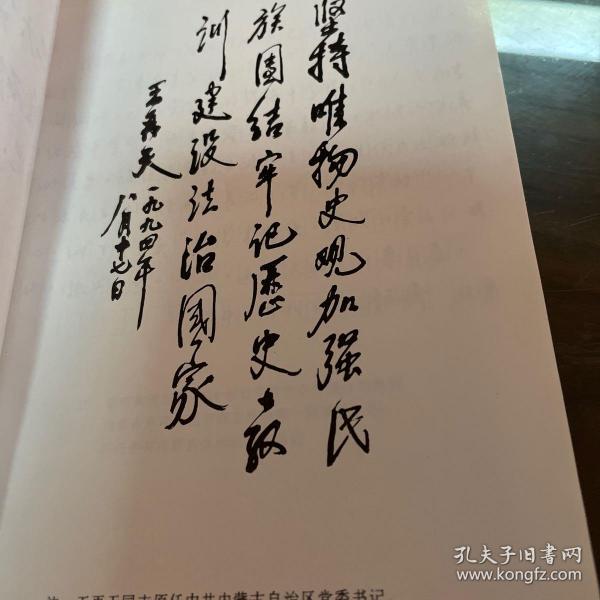 坚持唯物史观加强民
族團结牢记歷史教
训建设法治國家
王再天一九九四年
八月十七日
注：王再天同志原任中共内蒙古自治区党委书记
孔夫子旧书网
www.kongfz.com